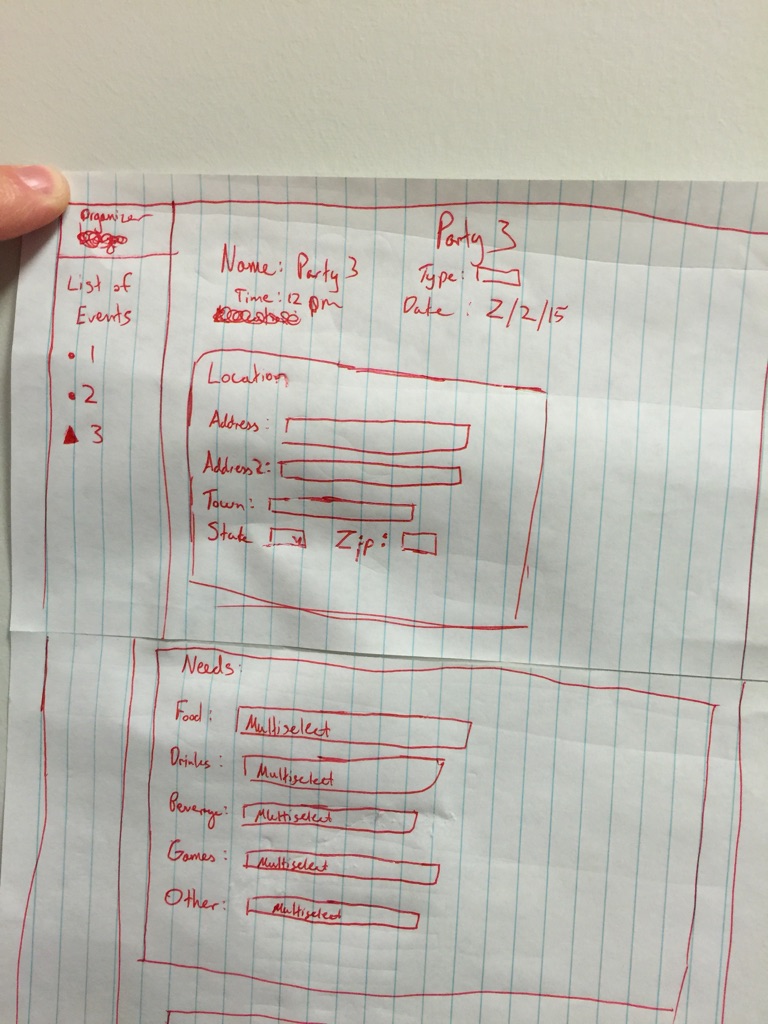 Organizer
List of
Events
• 1
• 2
▲ 3
Party 3
Name: Party 3
Type:
Time: 12 pm
Date: 2/2/15
Location
Address:
Address2:
Town:
State
Zip:
Needs:
Food: Multiselect
Drinks: Multiselect
Beverage: Multiselect
Games: Multiselect
Other: Multiselect